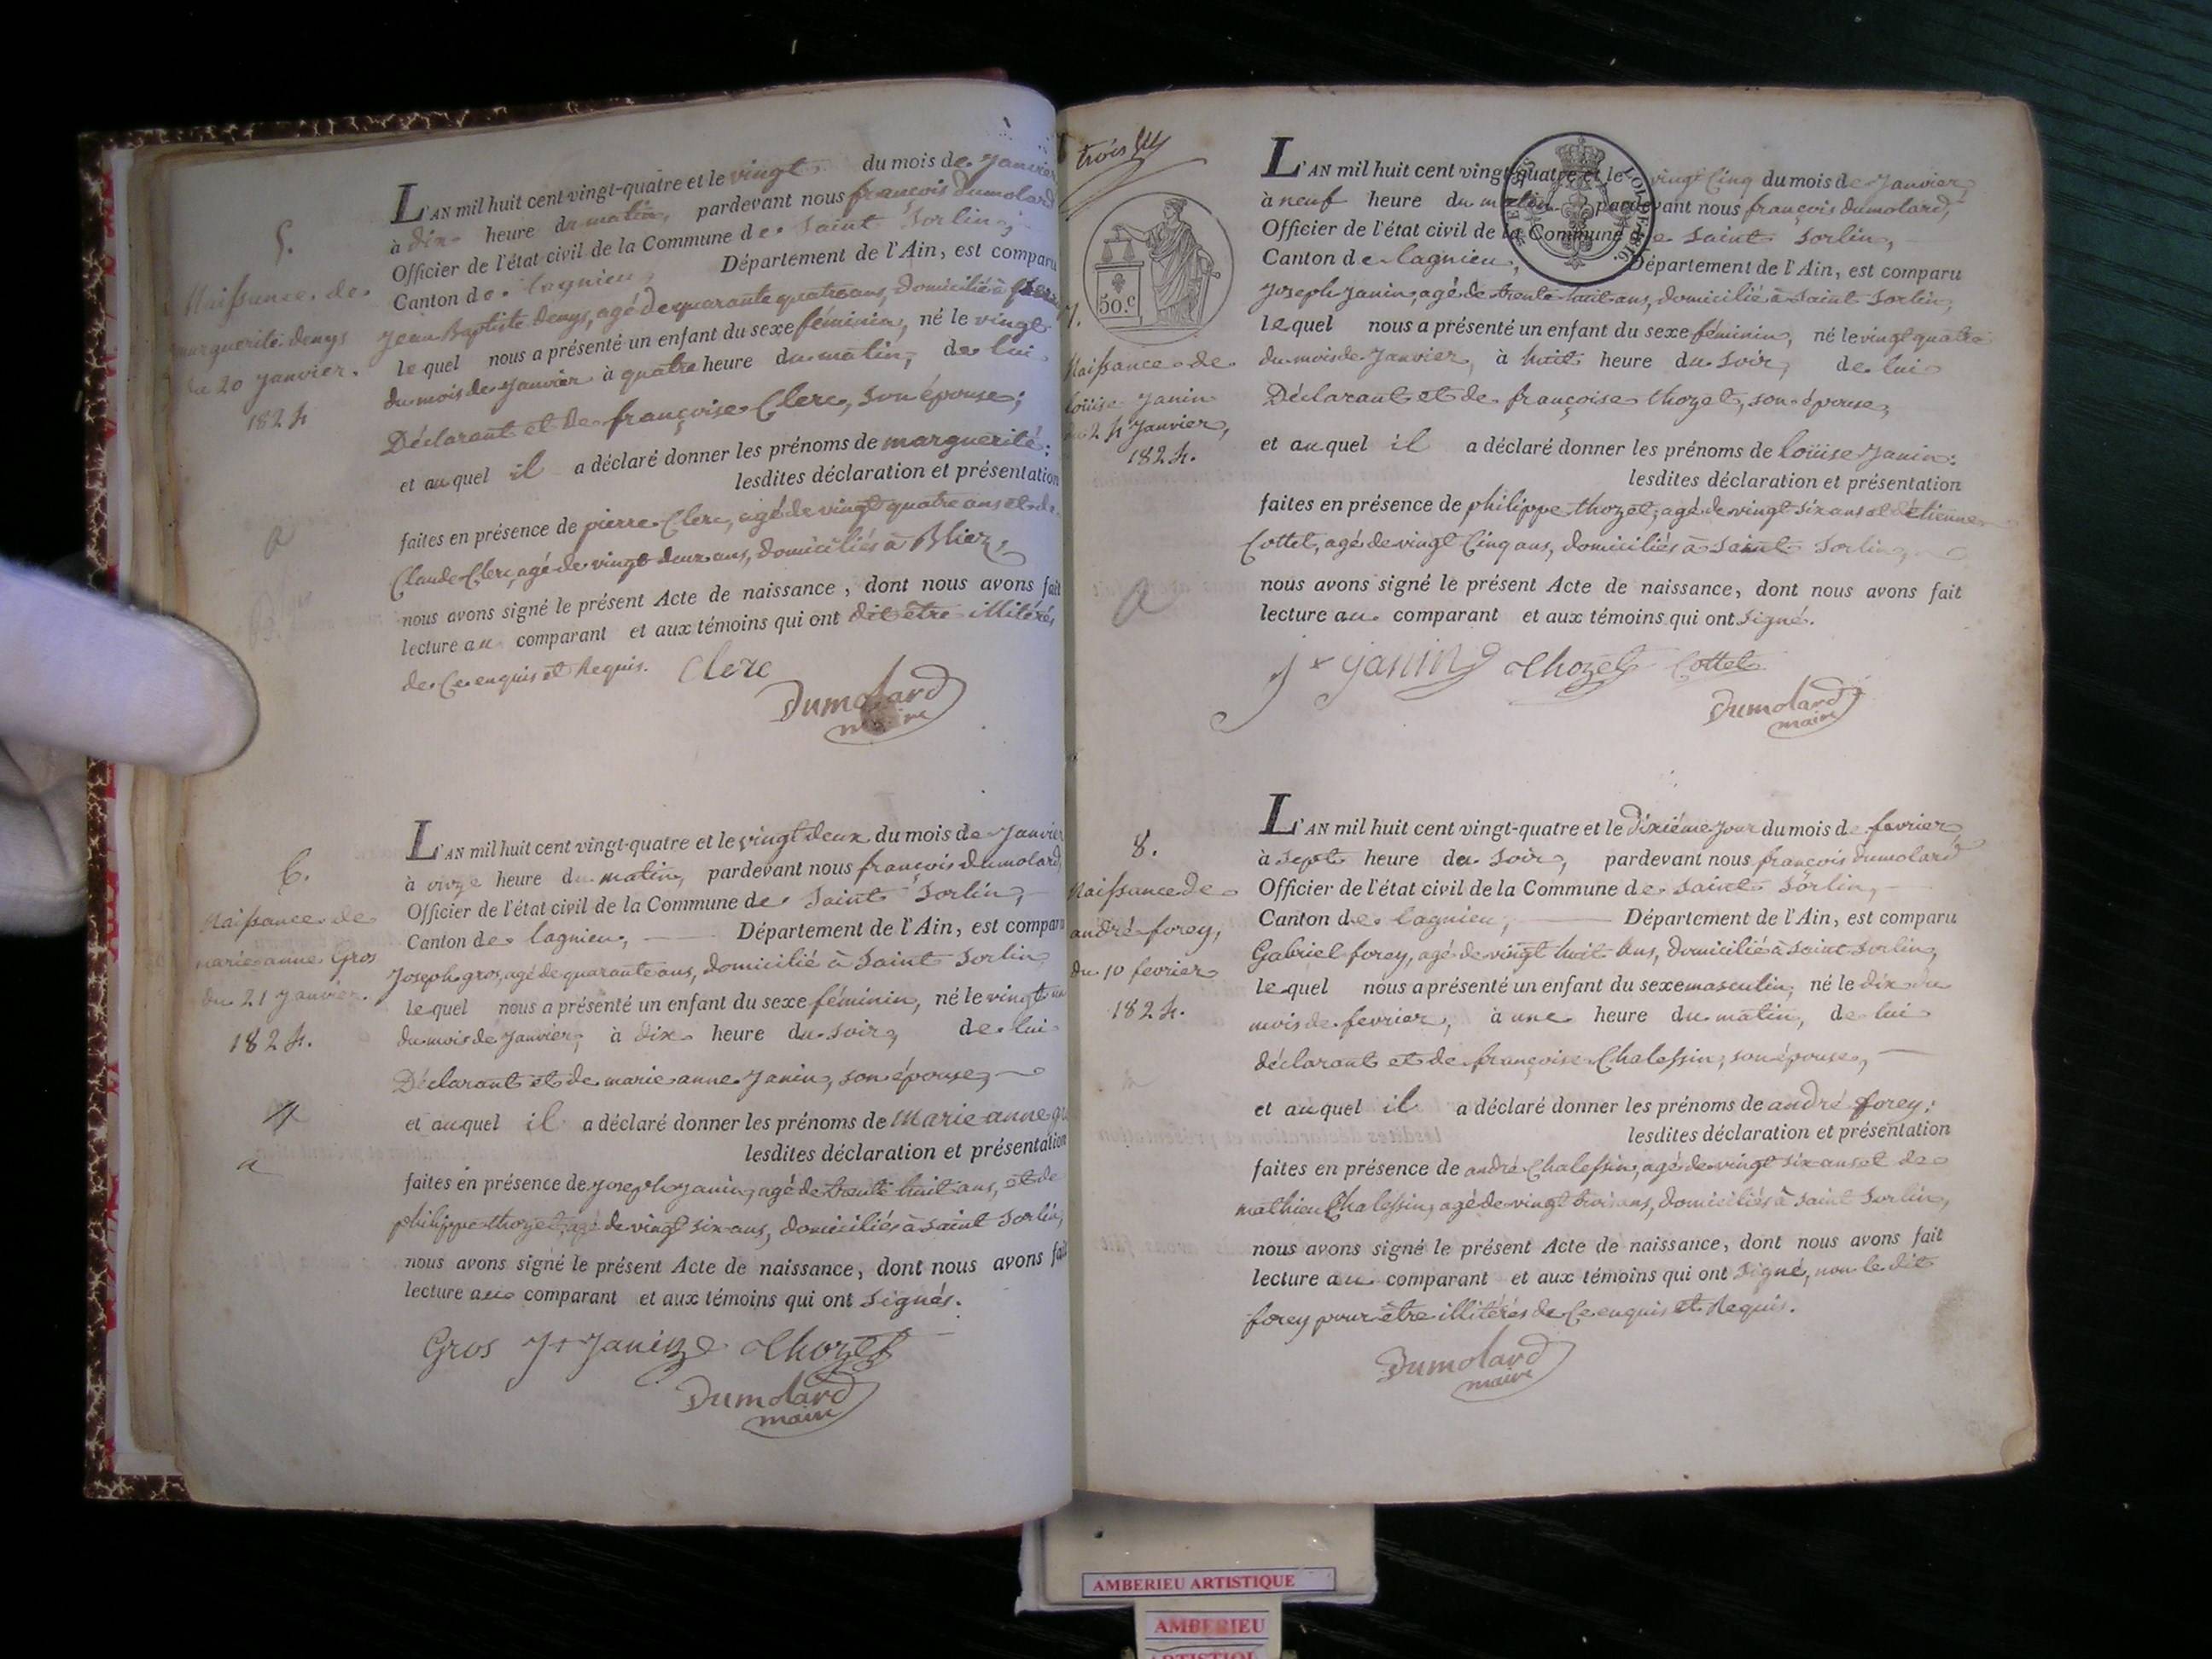 5.
Naissance de
marguerite denys
du 20 Janvier.
1824
L'AN mil huit cent vingt-quatre et le vingt du mois de Janvier
à dix heure du matin, pardevant nous françois dumolard
Officier de l'état civil de la Commune de Saint Sorlin,
Canton de lagnieu, Département de l'Ain, est comparu
Jean Baptiste denys, agé de quarante quatre ans, domicilié à
lequel nous a présenté un enfant du sexe féminin, né le vingt
du mois de Janvier à quatre heure du matin, de lui
Déclarant et de françoise Clerc, son épouse;
et auquel il a déclaré donner les prénoms de marguerite:
lesdites déclaration et présentation
faites en présence de pierre Clerc, agé de vingt quatre ans et de
Claude Clerc, agé de vingt deux ans, domiciliés à Bliez,
nous avons signé le présent Acte de naissance, dont nous avons fait
lecture au comparant et aux témoins qui ont dit être illitérés
de Ce enquis et Requis. Clerc
Dumolard
maire
6.
Naissance de
marie anne Gros
du 21 Janvier.
1824.
L'AN mil huit cent vingt-quatre et le vingt deux du mois de Janvier
à onze heure du matin, pardevant nous françois dumolard,
Officier de l'état civil de la Commune de Saint Sorlin,
Canton de lagnieu, Département de l'Ain, est comparu
Joseph gros, agé de quarante ans, domicilié à Saint Sorlin
lequel nous a présenté un enfant du sexe féminin, né le vingt un
du mois de Janvier, à dix heure du soir, de lui
Déclarant et de marie anne Janin, son épouse,
et auquel il a déclaré donner les prénoms de Marie anne
lesdites déclaration et présentation
faites en présence de Joseph Janin, agé de trente huit ans, et de
philippe thozet, agé de vingt six ans, domiciliés à Saint Sorlin,
nous avons signé le présent Acte de naissance, dont nous avons fait
lecture au comparant et aux témoins qui ont Signés.
Gros Jh Janin Thozet
Dumolard
maire
trois
50.c
7.
Naissance de
loüise Janin
du 24 Janvier,
1824.
L'AN mil huit cent vingt-quatre et le vingt Cinq du mois de Janvier,
à neuf heure du matin pardevant nous françois dumolard,
Officier de l'état civil de la Commune de Saint Sorlin,
Canton de lagnieu, Département de l'Ain, est comparu
Joseph Janin, agé de trente huit ans, domicilié à Saint Sorlin,
lequel nous a présenté un enfant du sexe féminin, né le vingt quatre
du mois de Janvier, à huit heure du soir, de lui
Déclarant et de françoise thozet, son épouse,
et auquel il a déclaré donner les prénoms de loüise Janin:
lesdites déclaration et présentation
faites en présence de philippe thozet, agé de vingt six ans et d'étienne
Cottet, agé de vingt Cinq ans, domiciliés à Saint Sorlin,
nous avons signé le présent Acte de naissance, dont nous avons fait
lecture au comparant et aux témoins qui ont signé.
Jh Janin Thozet Cottet
Dumolard
maire
8.
Naissance de
andré forey,
du 10 fevrier
1824.
L'AN mil huit cent vingt-quatre et le dixiéme jour du mois de fevrier
à Sept heure du Soir, pardevant nous françois dumolard
Officier de l'état civil de la Commune de Saint Sorlin,
Canton de lagnieu, Département de l'Ain, est comparu
Gabriel forey, agé de vingt huit Ans, domicilié à Saint Sorlin,
lequel nous a présenté un enfant du sexe masculin, né le dix du
mois de fevrier, à une heure du matin, de lui
déclarant et de françoise Chalessin, son épouse,
et auquel il a déclaré donner les prénoms de andré forey:
lesdites déclaration et présentation
faites en présence de andré Chalessin, agé de vingt six ans et de
mathieu Chalessin, agé de vingt trois ans, domiciliés à Saint Sorlin,
nous avons signé le présent Acte de naissance, dont nous avons fait
lecture au comparant et aux témoins qui ont Signé, non le dit
forey pour être illitérés de Ce enquis et Requis.
Dumolard
maire
AMBERIEU ARTISTIQUE
AMBERIEU
ARTISTIQUE